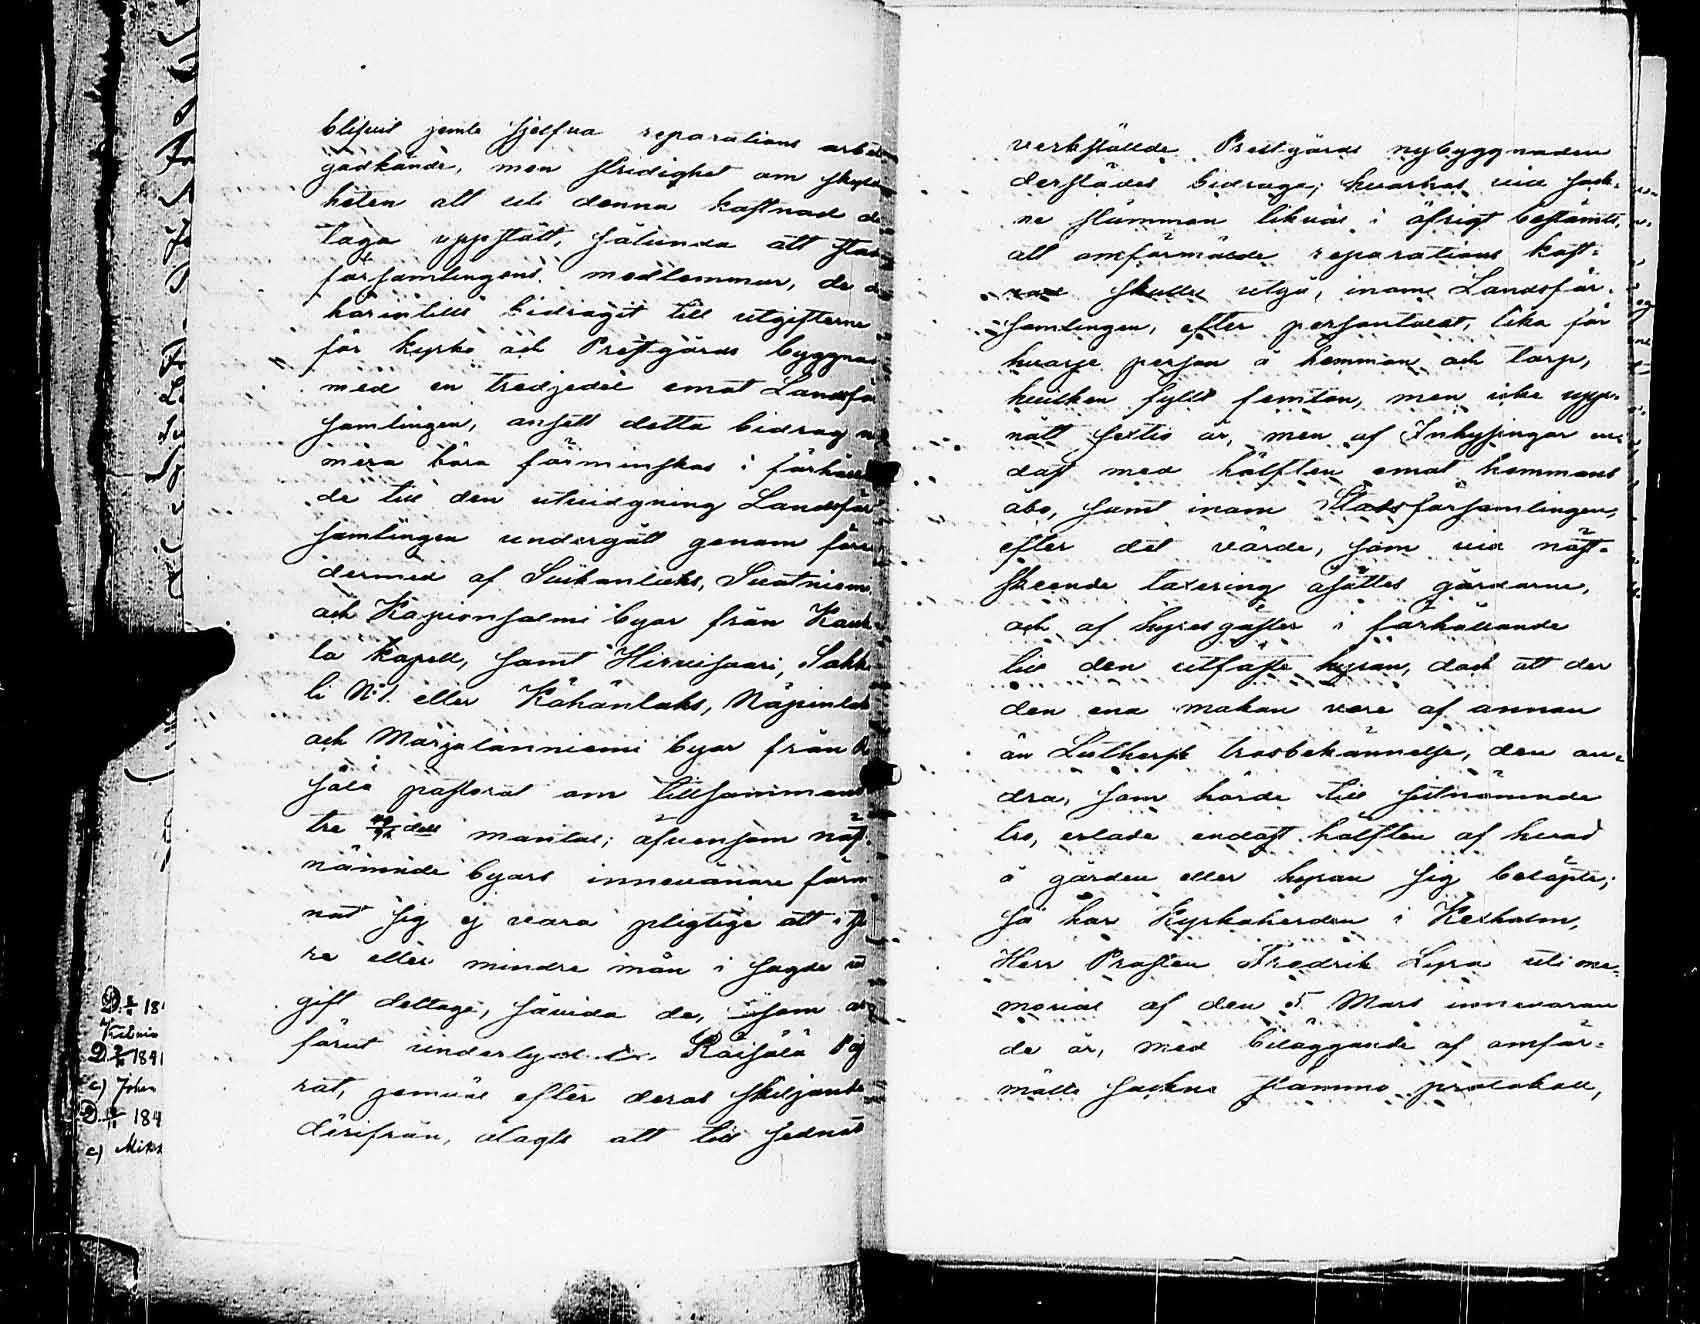 blifvit jemte sjelfva reparations arbe
godkände, men stridighet om skyl
heten att uti denna kostnad de
taga uppstått, sålunda att sta
församlingens medlemmar, de
härintills bidragit till utgifterne
för kyrko och Prestgårds byggna
med en tredjedel emot Landsför
samlingen, ansett detta bidrag
mera böra förminskas i förhålla
de till den utvidgning Landsför
samlingen undergått genom före
dermed af Suikanlaks, Suotniemi
och Kapionsalmi byar från Kauk
la Kapell, samt Hirvisaari, Sakk
li No 1. eller Kähänlaks, Näpinlak
och Marjalänniemi byar från
sälä pastorat om tillsammans
tre dels mantal; äfvensom näst
nämnde byars innevånare förm
nat sig ej vara pligtige att i
re eller mindre mån i sagde
gift deltaga, såvida de, som
förut underlydt Räisälä Pa
rat, jemväl efter deras skiljande
därifrån, ålagts att till sednast
verkställde Prestgårds nybyggnaden
derstädes bidraga; hvarhos vid sock-
ne stämman likväl i öfrigt bestämts,
att omförmälde reparations kost-
nad skulle utgå, inom Landsför-
samlingen, efter persontalet, lika för
hvarje person å hemman och torp,
hvilken fyllt femton, men icke upp-
nått sextio år, men af Inhysingar en-
dast med hälften emot hemmans
åbo, samt inom Stadsförsamlingen,
efter det värde, som vid näst-
skeende taxering åsättes gårdarne,
och af hyresgäster i förhållande
till den utfäste hyran, dock att der
den ena makan vore af annan
än Luthersk trosbekännelse, den an-
dra, som hörde till sistnämnde
tro, erlade endast hälften af hvad
å gården eller hyran sig belöpte;
så har Kyrkoherden i Kexholm,
Herr Prosten Fredrik Lyra uti me-
morial af den 5 Mars innevaran
de år, med biläggande af omför-
mälte sockne stämmo protokoll,